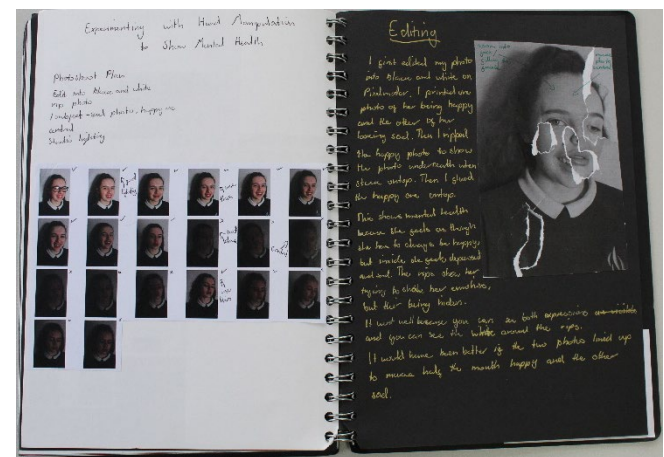 Experimenting with Hand Manipulation
to Show Mental Health
Photoshoot Plan
Edit into black and white
rip photo
1 subject - sad photo, happy one
control
Studio lighting
Editing
I first edited my photo
into black and white on
Pixlr. I printed one
photo of her being happy
and the other of her
looking sad. Then I ripped
the happy photo to show
the photo underneath when
stuck ontop. Then I glued
the happy one ontop.
This shows mental health
because she feels as though
she has to always be happy,
but inside she feels depressed
and sad. The rips show her
trying to show her emotions,
but her being hiden.
It went well because you can see both expressions
and you can see the white around the rips.
It would have been better if the two photos lined up
to make half the mouth happy and the other
sad.